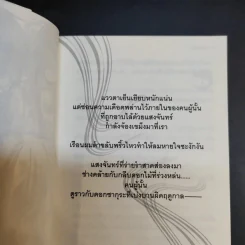 แววตาเย็นเยียบหนักแน่น
แต่ซ่อนความเดือดพล่านไว้ภายในของคนผู้นั้น
ที่ถูกอาบไล้ด้วยแสงจันทร์
กำลังจ้องเขม็งมาที่เรา
เรือนผมดำขลับพริ้วไหวทำให้ลมหายใจชะงักงัน
แสงจันทร์ที่ร่ายรำสาดส่องลงมา
ช่างคล้ายกับกลีบดอกไม้ที่ร่วงหล่น.....
คนผู้นั้น
ดูราวกับดอกซากุระที่เบ่งบานผิดฤดูกาล——